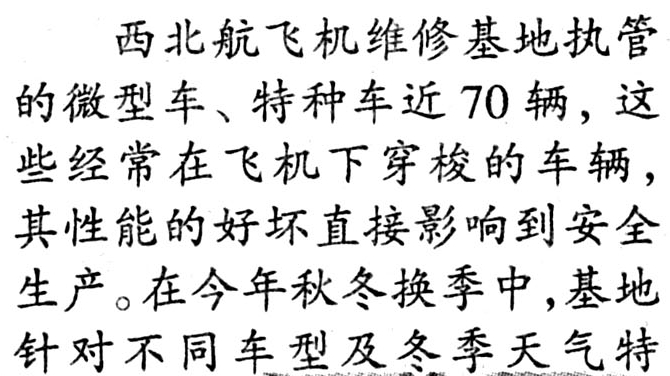 西北航飞机维修基地执管
的微型车、特种车近 70 辆，这
些经常在飞机下穿梭的车辆，
其性能的好坏直接影响到安全
生产。在今年秋冬换季中，基地
针对不同车型及冬季天气特